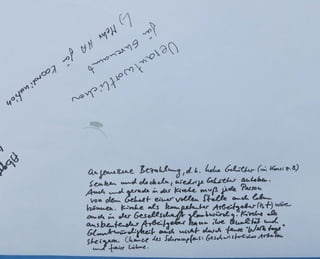 Verantwortlichen
für Ehrenamt
L) Mehr HA für Koordination
Angemessene Bezahlung, d.h. hohe Gehälter
Senken und deckeln, niedrige Gehälter anheben.
Auch und gerade in der Kirche muß jede Person
von dem Gehalt einer vollen Stelle auch leben
können. Kirche als kompetenter Arbeitgeber
auch in der Gesellschaft glaubwürdig. Kirche als
ausbeutender Arbeitgeber kann ihre Qualität und
Glaubwürdigkeit auch nicht durch faire
steigern. Chance des
und faire Löhne.